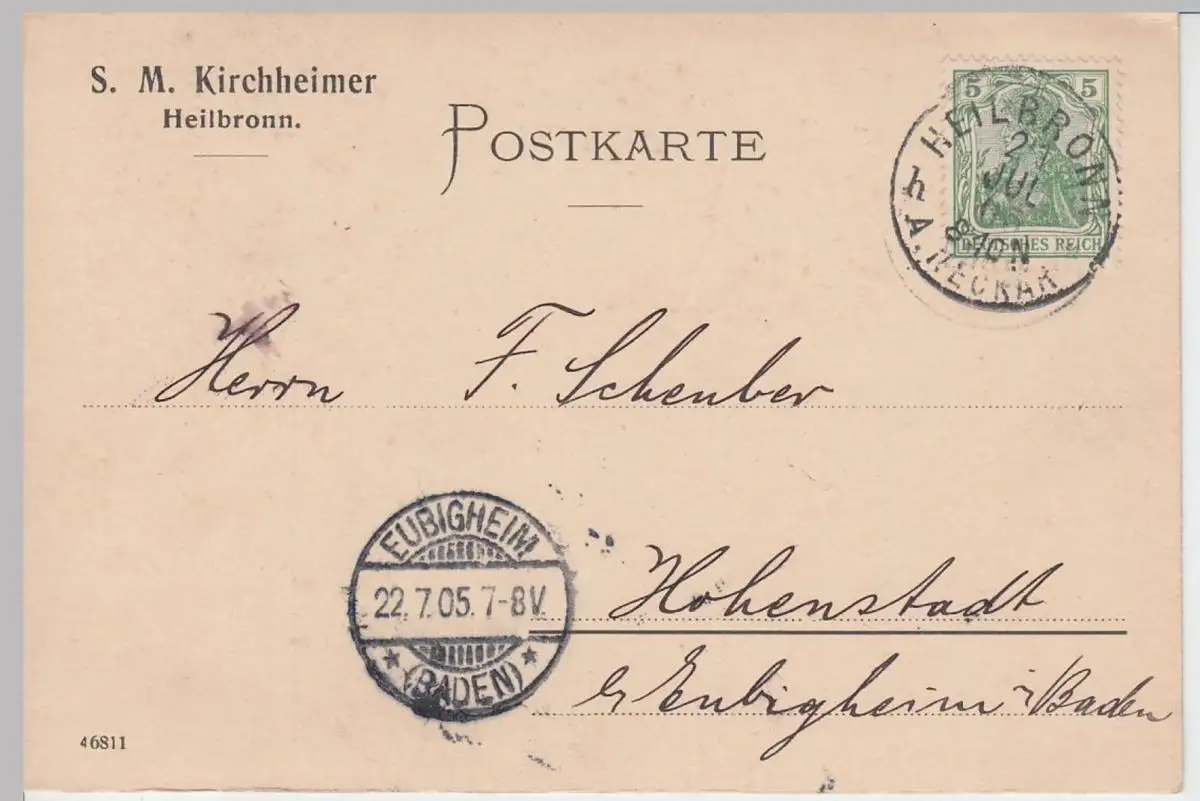 S. M. Kirchheimer
Heilbronn.
POSTKARTE
5 5
DEUTSCHES REICH
HEILBRONN
21
JUL
8-9 N
h
A. NECKAR
Herrn F. Scheuber
EUBIGHEIM
22.7.05.7-8V.
* (BADEN) *
Hohenstadt
Eubigheim i/Baden
46811